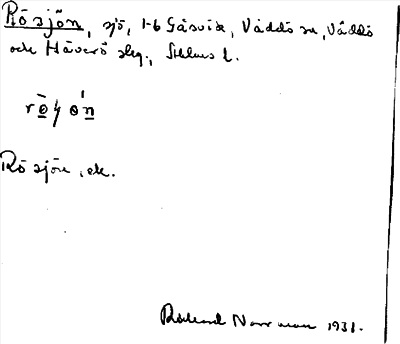 Rösjön, sjö, 1-6 Gåsvik, Väddö sn, Väddö
och Häverö skg., Sthlms l.
Rösjön, ek.
Rickard Norrman 1931.